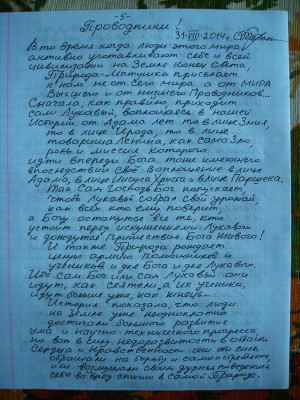 -5-
Проводники!
31-VIII-2014г.
В то время когда люди этого мира
активно уготавливают себе и всей
цивилизации на Земле Конец Света,
Природа-Матушка присылает
к нам не от Сего мира, а от МИРА
Высшего и от низшего Проводников...
Сначала, как правило, приходит
сам Лукавый, воплощаясь в нашей
Истории от Адама лет то в лице Змия,
то в лице Ирода, то в лице
товарища Ленина, как само Зло,
роль и миссия которого
идти впереди Бога, тоже имеющего
впоследствии Своё Воплощение в лице
Адама, в лице Иисуса Христа и в лице
Так Сам Господь Бог попускает,
чтобы Лукавый собрал Свой урожай,
как всех кто ему поверит,
а Богу останутся все те, кто
устоит перед искушениями Лукавого
и дождутся Пришествие Бога Живого!
И также Природа рождает
целую армию помощников и
учеников и для Бога и для Лукавого.
Ибо Сам Бог или сам Лукавый они
идут, как сеятели, а их ученики,
идут больше уже как жнецы...
История показала, что люди
на Земле уже неоднократно
достигали большого развития
ума и научно-технического прогресса,
но вот в силу недоразвитости в
Сердца и Нравственности они эти силы
обращали на борьбу и самоистребление,
или возмущали своим дурным поведением
себе во вред стихии в самой Природе.